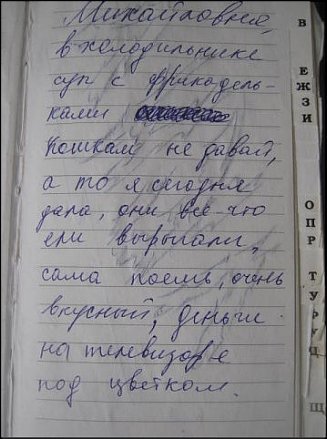 Михайловна,
в холодильнике
суп с фрикадель-
ками
Кошкам не давай,
а то я сегодня
дала, они всё что
ели вырыгали,
сама поешь, очень
вкусный, деньги
на телевизоре
под цветком.
В
ЕЖЗИ
ОПР
ТУ
Щ